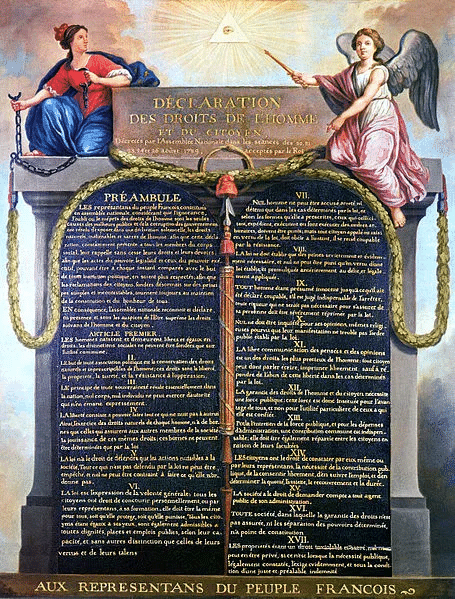 DÉCLARATION
DES DROITS DE L'HOMME
ET DU CITOYEN
Décrétés par l'Assemblée Nationale dans les séances des 20, 21,
23, 24 et 26 août 1789, acceptés par le Roi
PRÉAMBULE
LES représentans du peuple François, constitués
en assemblée nationale, considérant que l'ignorance,
l'oubli ou le mépris des droits de l'homme sont les seules
causes des malheurs publics et de la corruption des gouvernemens
ont résolu d'exposer dans une déclaration solemnelle, les droits
naturels, inaliénables et sacrés de l'homme; afin que cette déclaration,
constamment présente à tous les membres du corps
social, leur rappelle sans cesse leurs droits et leurs devoirs;
afin que les actes du pouvoir législatif et ceux du pouvoir exécutif,
pouvant être à chaque instant comparés avec le but
de toute institution politique, en soient plus respectés; afin que
les réclamations des citoyens, fondées désormais sur des principes
simples et incontestables, tournent toujours au maintien
de la constitution et du bonheur de tous.
EN conséquence, l'assemblée nationale reconnoît et déclare,
en présence et sous les auspices de l'Être suprême les droits
suivans de l'homme et du citoyen.
ARTICLE PREMIER.
LES hommes naissent et demeurent libres et égaux en
droits; les distinctions sociales ne peuvent être fondées que sur
l'utilité commune.
II.
LE but de toute association politique est la conservation des droits
naturels et imprescriptibles de l'homme; ces droits sont la liberté,
la propriété, la sureté, et la résistance à l'oppression.
III.
LE principe de toute souveraineté réside essentiellement dans
la nation, nul corps, nul individu ne peut exercer d'autorité
qui n'en émane expressément.
IV.
LA liberté consiste à pouvoir faire tout ce qui ne nuit pas à autrui
Ainsi, l'exercice des droits naturels de chaque homme, n'a de bornes
que celles qui assurent aux autres membres de la société
la jouissance de ces mêmes droits; ces bornes ne peuvent
être déterminées que par la loi
V.
LA loi n'a le droit de défendre que les actions nuisibles à la
société. Tout ce qui n'est pas défendu par la loi ne peut être
empêché, et nul ne peut être contraint à faire ce qu'elle n'ordonne
pas.
VI.
LA loi est l'expression de la volonté générale; tous les
citoyens ont droit de concourir personnellement, ou par
leurs représentans, à sa formation; elle doit être la même
pour tous, soit qu'elle protège, soit qu'elle punisse. Tous les citoyens
étant égaux à ses yeux, sont également admissibles à
toutes dignités, places et emplois publics, selon leur capacité,
et sans autres distinction que celles de leurs
vertus et de leurs talens
VII.
NUL homme ne peut être accusé, arrêté ni
détenu que dans les cas déterminés par la loi, et
selon les formes qu'elle a prescrites, ceux qui sollicitent,
expédient, exécutent ou font exécuter des ordres arbitraires,
doivent être punis; mais tout citoyen appelé ou saisi
en vertu de la loi, doit obéir à l'instant, il se rend coupable
par la résistance.
VIII.
LA loi ne doit établir que des peines strictement et évidemment
nécessaires, et nul ne peut être puni qu'en vertu d'une
loi établie et promulguée antérieurement au délit, et légalement
appliquée.
IX.
TOUT homme étant présumé innocent jusqu'à ce qu'il ait
été déclaré coupable, s'il est jugé indispensable de l'arrêter,
toute rigueur qui ne serait pas nécessaire pour s'assurer de
sa personne doit être sévèrement réprimée par la loi.
X.
NUL ne doit être inquiété pour ses opinions, mêmes religieuses
pourvu que leur manifestation ne trouble pas l'ordre
public établi par la loi.
XI.
LA libre communication des pensées et des opinions
est un des droits les plus précieux de l'homme; tout citoyen
peut donc parler, écrire, imprimer librement: sauf à répondre
de l'abus de cette liberté dans les cas déterminés
par la loi.
XII.
LA garantie des droits de l'homme et du citoyen nécessite
une force publique; cette force est donc instituée pour l'avantage
de tous, et non pour l'utilité particulière de ceux à qui
elle est confiée.
XIII.
POUR l'entretien de la force publique, et pour les dépenses
d'administration, une contribution commune est indispensable;
elle doit être également répartie entre les citoyens en
raison de leurs facultées
XIV.
LES citoyens ont le droit de constater par eux même ou
par leurs représentans, la nécessité de la contribution publique,
de la consentir librement, d'en suivre l'emploi, et d'en
déterminer la quotité, l'assiette, le recouvrement et la durée.
XV.
LA société a le droit de demander compte à tout agent
public de son administration.
XVI.
TOUTE société, dans laquelle la garantie des droits n'est
pas assurée, ni les séparation des pouvoirs déterminée,
n'a point de constitution
XVII.
LES propriétés étant un droit inviolable et sacré, nul ne
peut en être privé, si ce n'est lorsque la nécessité publique,
légalement constatée, l'exige évidemment, et sous la condition
d'une juste et préalable indemnité
AUX REPRESENTANS DU PEUPLE FRANCOIS